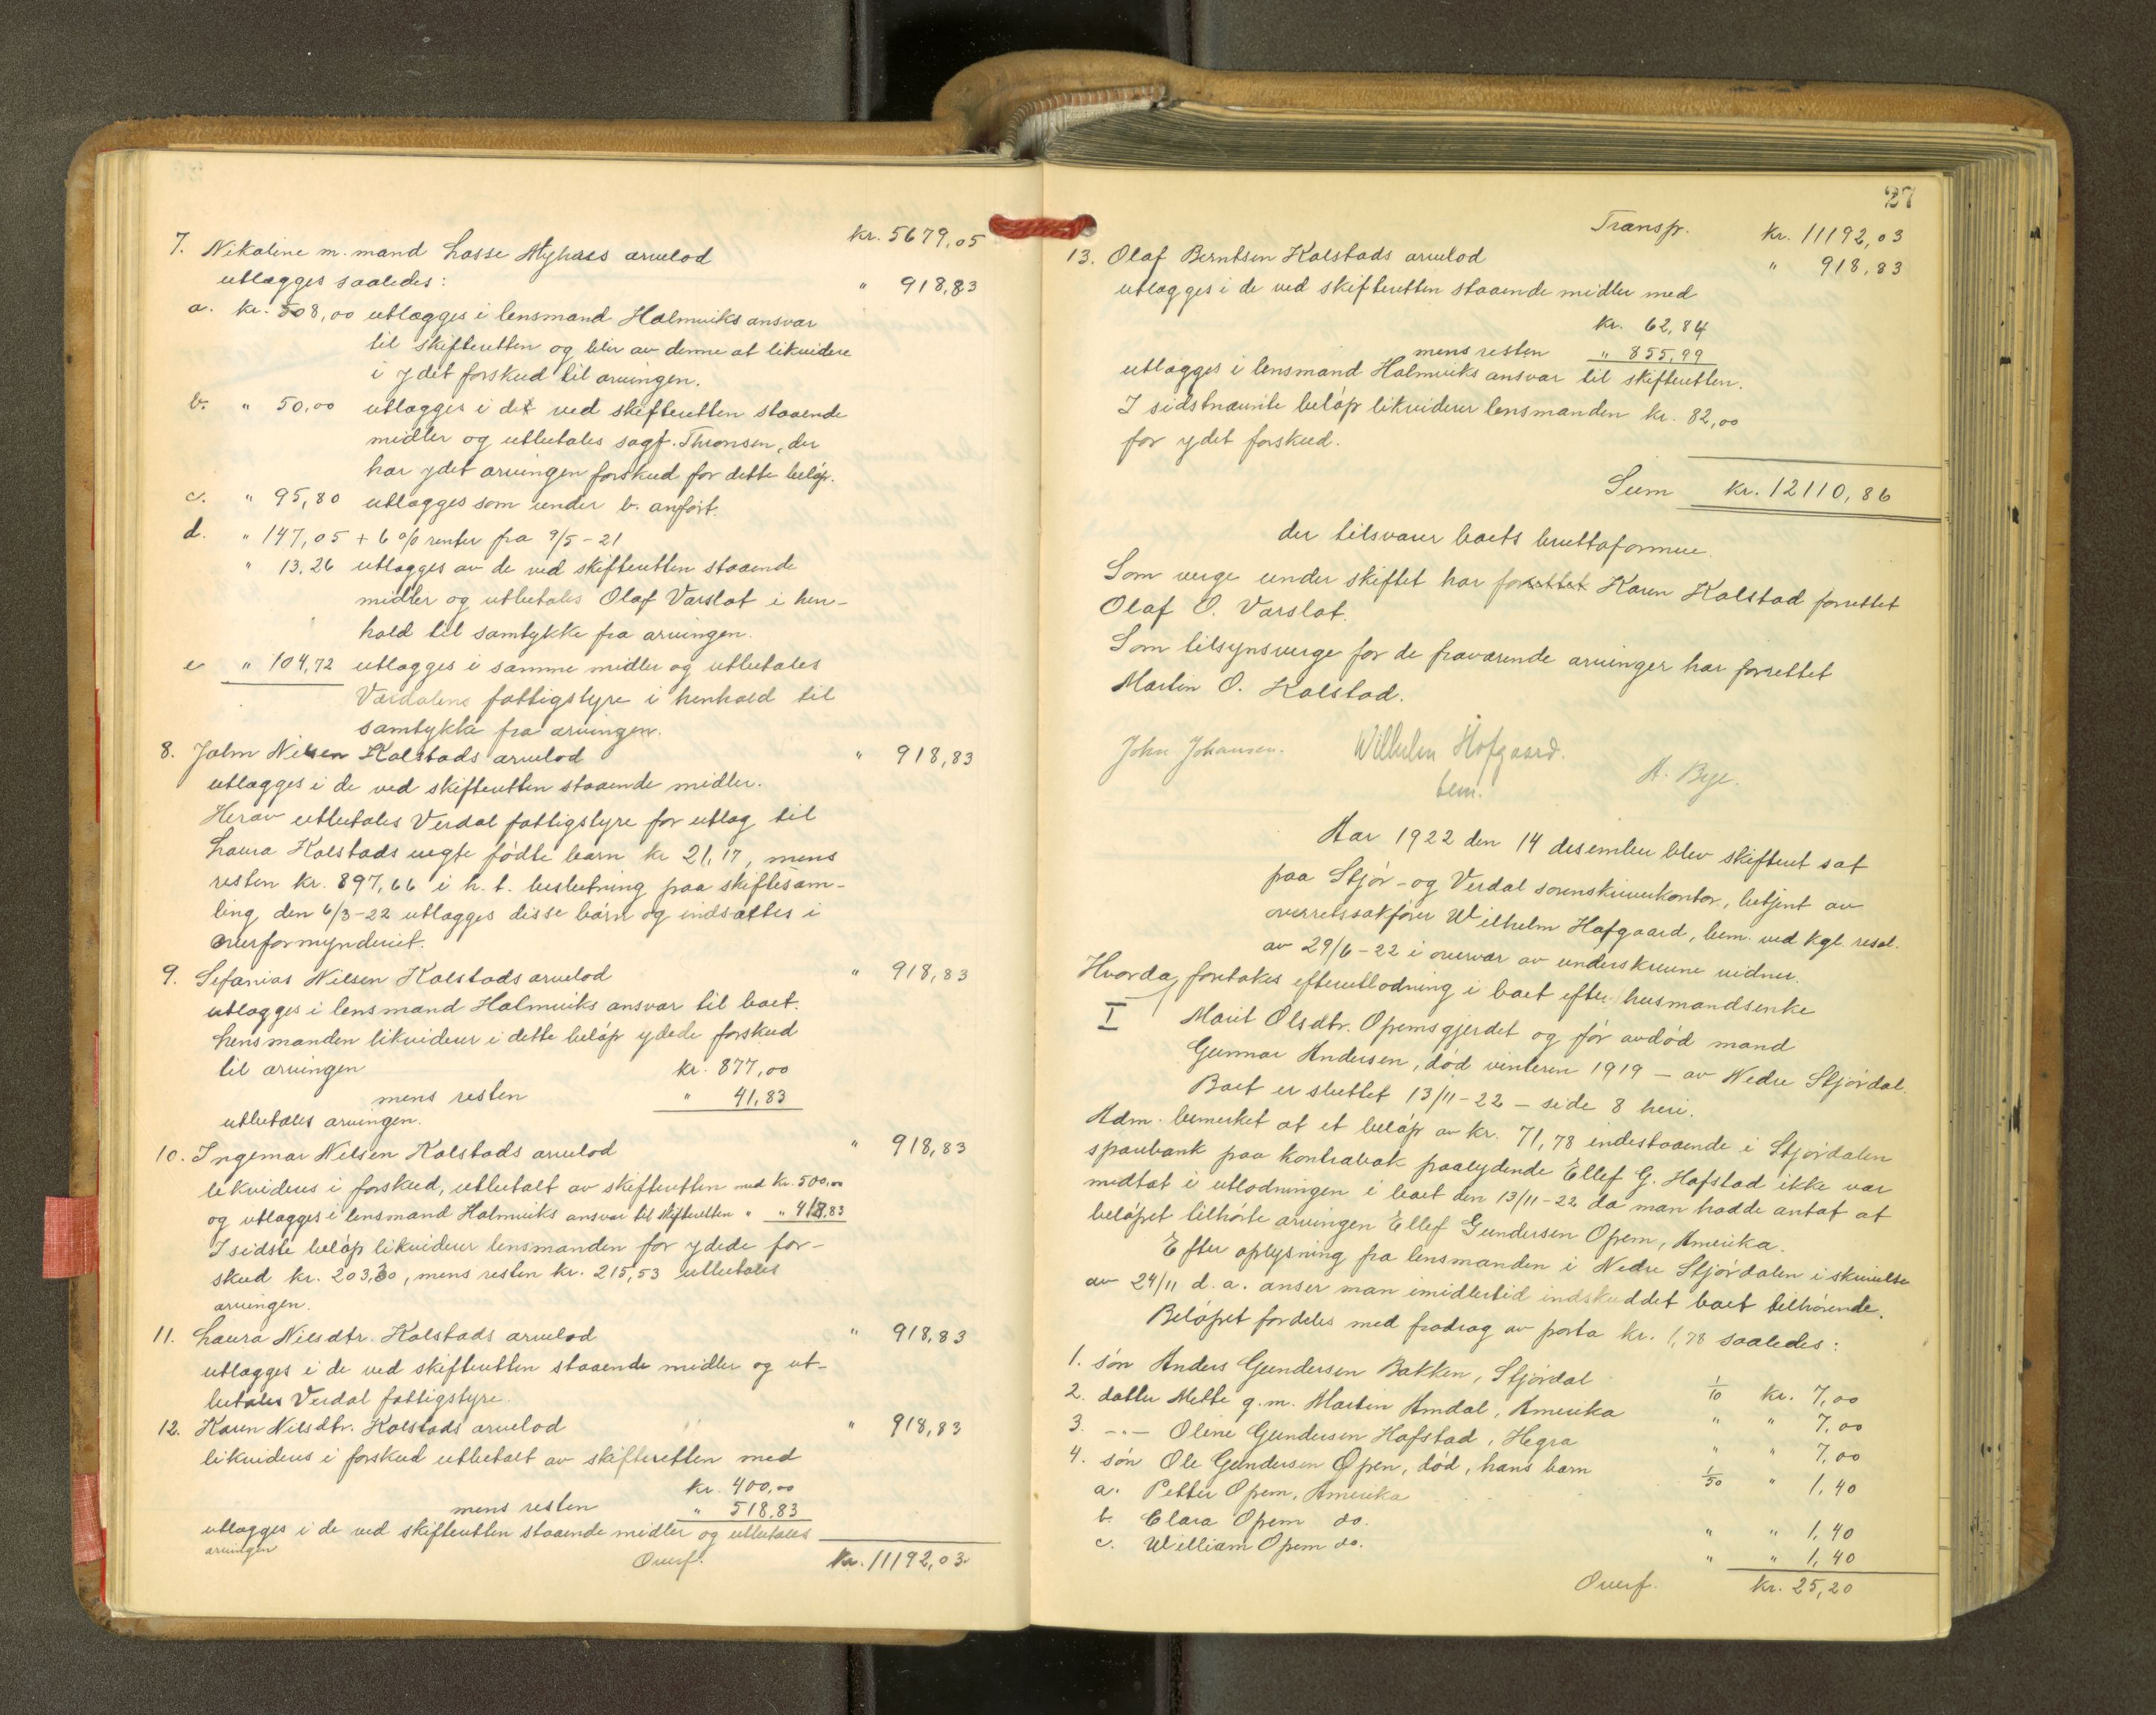 kr. 5679,05
7. Nikoline m. mand Lasse Myhaes arvelod
utlægges saaledes: " 918,83
a. kr. 508,00 utlægges i lensmand Halmviks ansvar
til skifteretten og blir av denne at likvidere
i ydet forskud til arvingen.
b. " 50,00 utlægges i det ved skifteretten staaende
midler og utbetales sagf. Thronsen, der
har ydet arvingen forskud for dette beløp.
c. " 95,80 utlægges som under b. anført.
d. " 147,05 + 6 % renter fra 9/5-21
" 13.26 utlægges av de ved skifteretten staaende
midler og utbetales Olaf Varslot i hen-
hold til samtykke fra arvingen.
e " 104,72 utlægges i samme midler og utbetales
Værdalens fattigstyre i henhold til
samtykke fra arvingen.
8. Jalm Nilsen Kolstads arvelod " 918,83
utlægges i de ved skifteretten staaende midler.
Herav utbetales Verdal fattigstyre for utlæg til
Laura Kolstads uegte fødte barn kr 21,17, mens
resten kr. 897,66 i h. t. beslutning paa skiftesam-
ling den 6/3-22 utlægges disse børn og indsættes i
overformynderiet.
9. Sefanias Nilsen Kolstads arvelod " 918,83
utlægges i lensmand Halmviks ansvar til boet.
Lensmanden likviderer i dette beløp ydede forskud
til arvingen kr. 877,00
mens resten " 41,83
utbetales arvingen.
10. Ingemar Nilsen Kolstads arvelod " 918,83
likvideres i forskud, utbetalt av skifteretten med kr. 500,00
og utlægges i lensmand Halmviks ansvar til skifteretten " " 418,83
I sidste beløp likviderer lensmanden for ydede for-
skud kr. 203,30, mens resten kr. 215,53 utbetales
arvingen.
11. Laura Nilsdtr. Kolstads arvelod " 918,83
utlægges i de ved skifteretten staaende midler og ut-
betales Verdal fattigstyre.
12. Karen Nilsdtr. Kolstads arvelod " 918,83
likvideres i forskud utbetalt av skifteretten med
kr. 400,00
mens resten " 518,83
utlægges i de ved skifteretten staaende midler og utbetales
arvingen
Overf. kr. 11192,03
27
Transp. kr. 11192,03
13. Olaf Berntsen Kolstads arvelod " 918,83
utlægges i de ved skifteretten staaende midler med
kr. 62,84
mens resten " 855,99
utlægges i lensmand Halmviks ansvar til skifteretten.
I sidstnævnte beløp likviderer lensmanden kr. 82,00
for ydet forskud.
Sum kr. 12110,86
der tilsvarer boets bruttoformue.
Som verge under skiftet har forrettet Karen Kolstad forrettet
Olaf O. Varslot.
Som tilsynsverge for de fraværende arvinger har forrettet
Martin O. Kolstad.
John Johansen. Wilhelm Hofgaard. A. Bye.
bem.
Aar 1922 den 14 desember blev skifteret sat
paa Stjør- og Verdal sorenskriverkontor, betjent av
overretssakfører Wilhelm Hofgaard, bem. ved kgl. resol.
av 29/6-22 i overvær av underskrevne vidner.
Hvorda foretakes efterutlodning i boet efter husmandsenke
I Marit Olsdtr. Opemsgjerdet og før avdød mand
Gunnar Andersen, død vinteren 1919 - av Nedre Stjørdal.
Boet er sluttet 13/11-22 - side 8 heri.
Adm. bemerket at et beløp av kr. 71,78 indestaaende i Stjørdalen
sparebank paa kontrabok paalydende Ellef G. Hofstad ikke var
medtat i utlodningen i boet den 13/11-22 da man hadde antat at
beløpet tilhørte arvingen Ellef Gundersen Opem, Amerika.
Efter oplysning fra lensmanden i Nedre Stjørdalen i skrivelse
av 24/11 d. a. anser man imidlertid indskuddet boet tilhørende.
Beløpet fordeles med fradrag av porto kr. 1,78 saaledes:
1. søn Anders Gundersen Bakken, Stjørdal 1/10 kr. 7,00
2. datter Mette g. m. Martin Amdal, Amerika " " 7,00
3. -"- Oline Gundersen Hofstad, Hegra " " 7,00
4. søn Ole Gundersen Open, død, hans barn
a. Petter Opem, Amerika 1/50 " 1,40
b. Clara Opem do. " " 1,40
c. William Opem do. " " 1,40
Overf. kr. 25,20